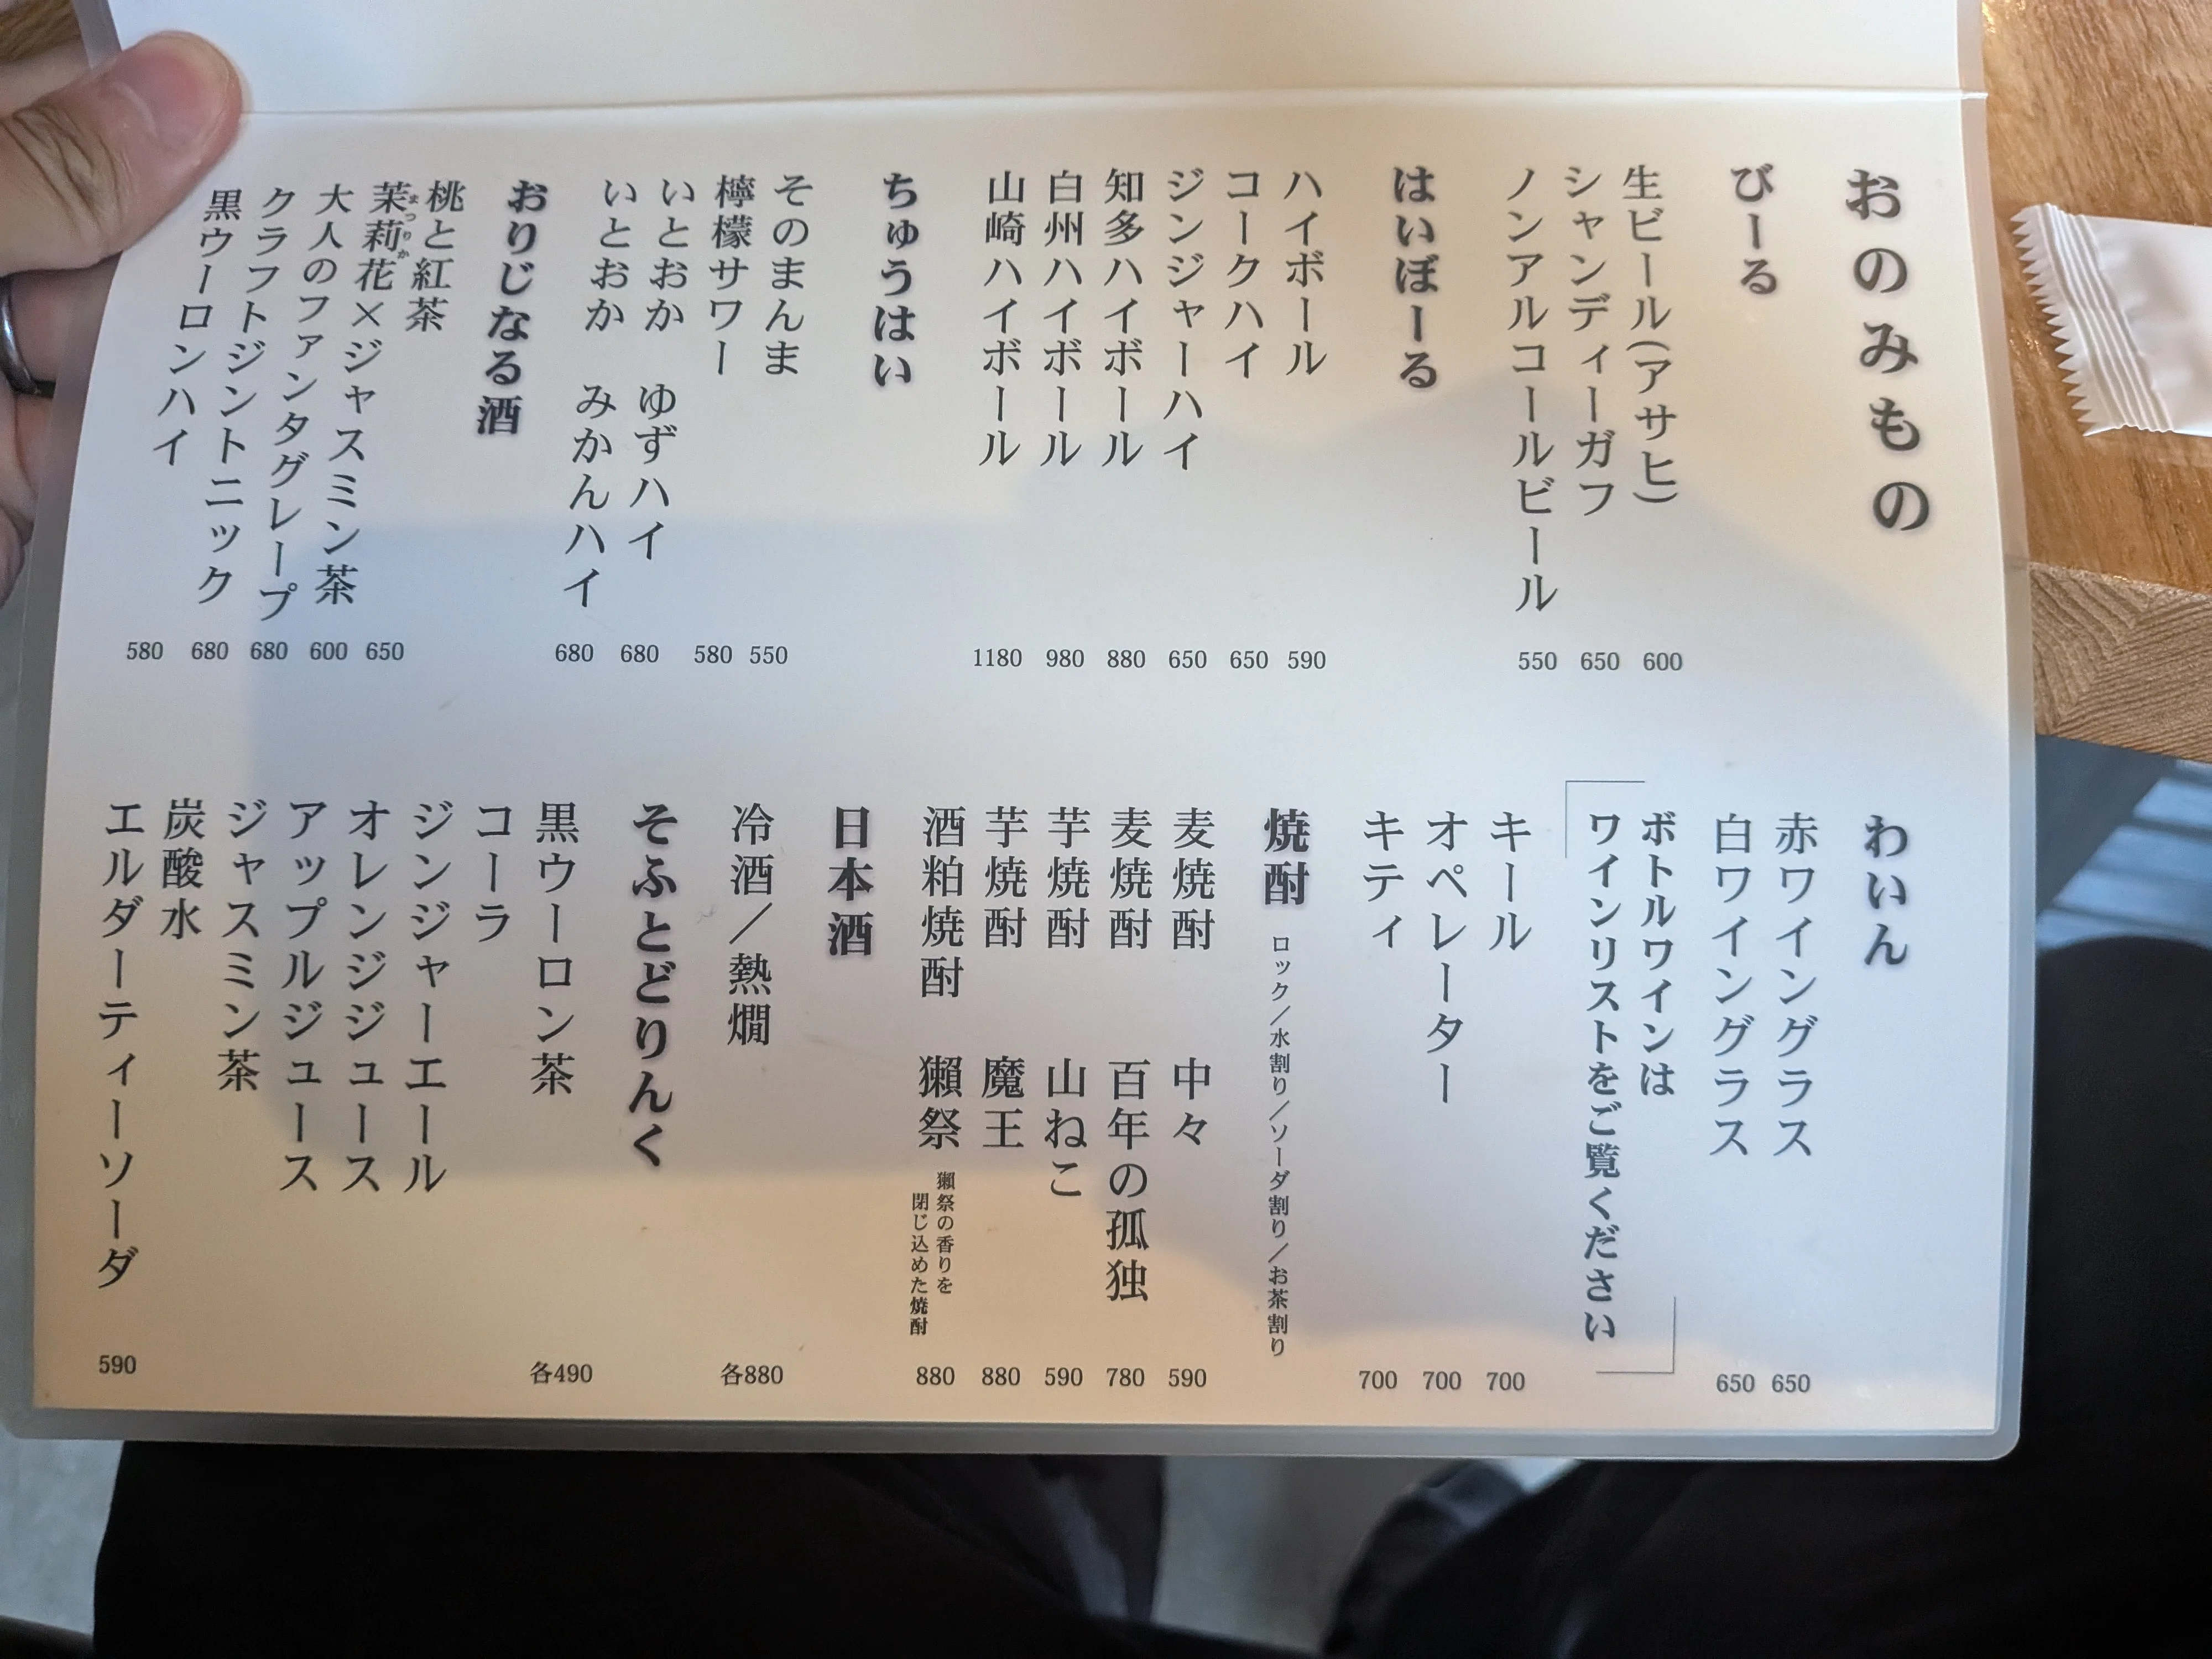 おのみもの
びーる
生ビール(アサヒ) 600
シャンディーガフ 650
ノンアルコールビール 550
はいぼーる
ハイボール 590
コークハイ 650
ジンジャーハイ 650
知多ハイボール 880
白州ハイボール 980
山崎ハイボール 1180
ちゅうはい
そのまんま
檸檬サワー 550
いとおか ゆずハイ 580
いとおか みかんハイ 680
680
おりじなる酒
桃と紅茶 650
茉莉花×ジャスミン茶 600
まつりか
大人のファンタグレープ 680
クラフトジントニック 680
黒ウーロンハイ 580
わいん
赤ワイングラス 650
白ワイングラス 650
ボトルワインは
ワインリストをご覧ください
キール 700
オペレーター 700
キティ 700
焼酎 ロック/水割り/ソーダ割り/お茶割り
麦焼酎 中々 590
麦焼酎 百年の孤独 780
芋焼酎 山ねこ 590
芋焼酎 魔王 880
酒粕焼酎 獺祭 880
獺祭の香りを
閉じ込めた焼酎
日本酒
冷酒/熱燗 各880
そふとどりんく
黒ウーロン茶 各490
コーラ
ジンジャーエール
オレンジジュース
アップルジュース
ジャスミン茶
炭酸水
エルダーティーソーダ 590